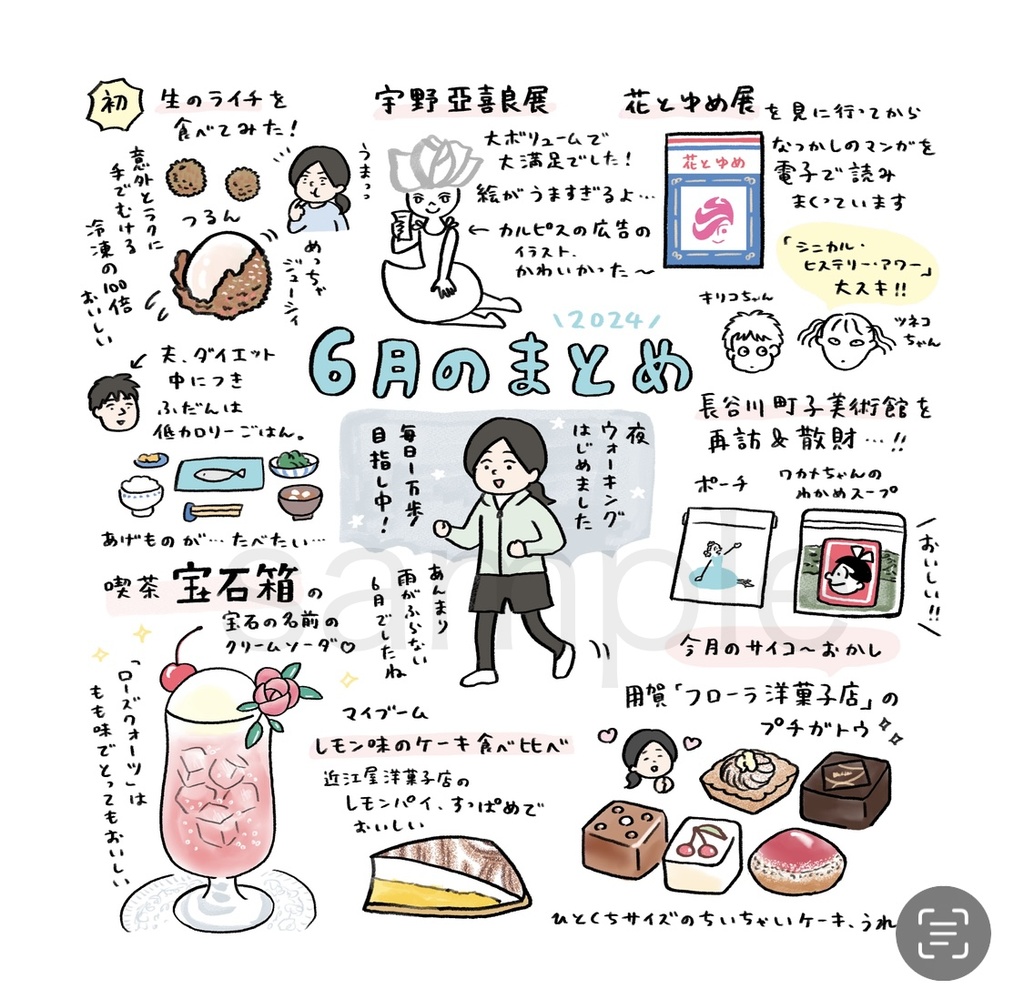 初
生のライチを
食べてみた!
意外とラクに
手でむける
冷凍の100倍
おいしい
つるん
うまっっ
めっちゃ
ジューシィ
宇野亞喜良展
大ボリュームで
大満足でした!
絵がうますぎるよ…
← カルピスの広告の
イラスト、
かわいかった〜
花とゆめ展を見に行ってから
なつかしのマンガを
電子で読み
まくっています
花とゆめ
「シニカル・
ヒステリー・アワー」
大スキ!!
キリコちゃん
ツネコ
ちゃん
\2024/
6月のまとめ
夫、ダイエット
中につき
ふだんは
低カロリーごはん。
あげものが…たべたい…
夜
ウォーキング
はじめました
毎日一万歩
目指し中!
あんまり
雨がふらない
6月でしたね
長谷川町子美術館を
再訪&散財…!!
ポーチ
ワカメちゃんの
わかめスープ
おいしい!!
喫茶 宝石箱の
宝石の名前の
クリームソーダ♡
「ローズクォーツ」は
もも味でとってもおいしい
マイブーム
レモン味のケーキ食べ比べ
近江屋洋菓子店の
レモンパイ、すっぱめで
おいしい
今月のサイコ〜おかし
用賀「フローラ洋菓子店」の
プチガトウ
ひとくちサイズのちいちゃいケーキ、うれ
sample